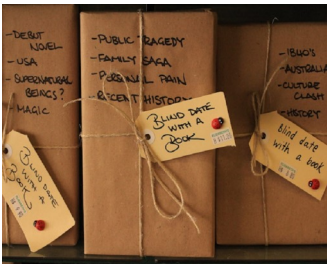 -DEBUT
NOVEL
-USA
-SUPERNATURAL
BEINGS?
-MAGIC
BLIND DATE
WITH A
BOOK
-PUBLIC TRAGEDY
-FAMILY SAGA
-PERSONAL PAIN
-RECENT HISTORY
BLIND DATE
WITH A
BOOK
-1840'S
-AUSTRALIA
-CULTURE
CLASH
-HISTORY
Blind date
with a book